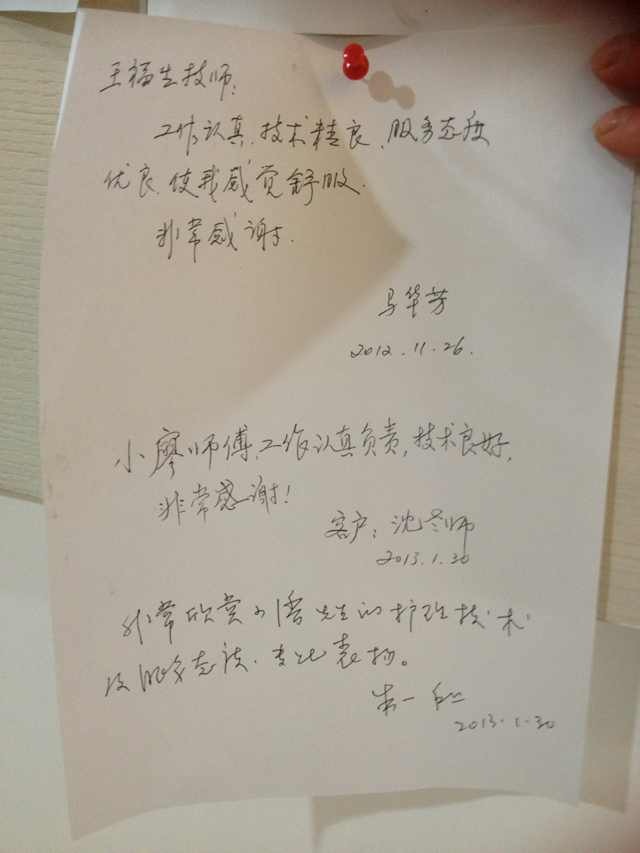 王福生技师:
工作认真、技术精良、服务态度
优良、使我感觉舒服.
非常感谢.
马华芳
2012.11.26.
小廖师傅,工作认真负责,技术良好,
非常感谢!
客户: 沈冬师
2013.1.30
非常欣赏小潘先生的护理技术
及服务态读.专此表扬。
朱一
2013.1.30